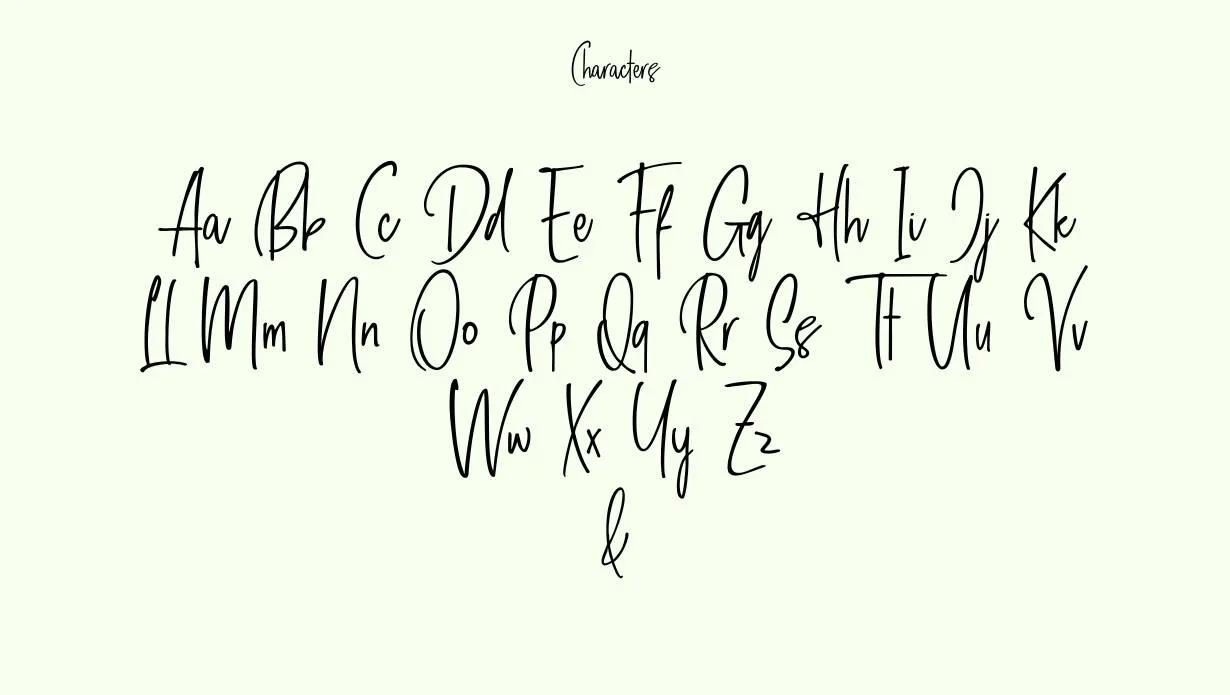 Characters
Aa Bb Cc Dd Ee Ff Gg Hh Ii Jj Kk
Ll Mm Nn Oo Pp Qq Rr Ss Tt Uu Vv
Ww Xx Yy Zz
&